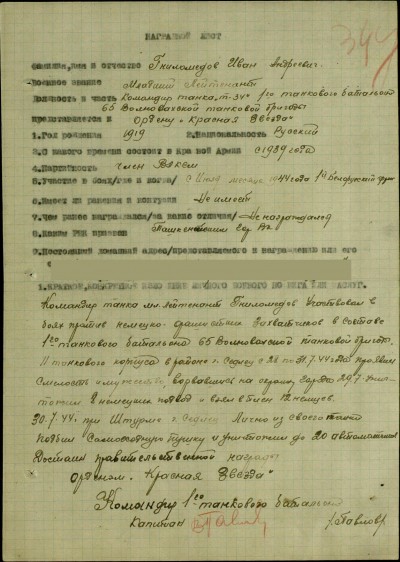 НАГРАДНОЙ ЛИСТ
Фамилия, имя и отчество Гниломедов Иван Андреевич
Военное звание Младший Лейтенант
Должность и часть Командир танка „Т-34" 1го танкового батальона
65 Волновахской танковой бригады
представляется к Ордену „Красная Звезда"
1.Год рождения 1919 2.Национальность Русский
3.С какого времени состоит в Красной Армии С 1939 года
4.Партийность член ВЛКСМ
5.Участие в боях/где и когда/ с Июля месяца 1944 года 1й Белорусский фр
6.Имеет ли ранения и контузии Не имеет
7.Чем ранее награжден/за какие отличия/ Не награждался
8.Каким РВК призван
9.Постоянный домашний адрес/представляемого к награждению или его
Командир танка мл. лейтенант Гниломедов Участвовал в
боях против немецко-фашистских Захватчиков в составе
1го танкового батальона 65 Волновахской танковой бригады
11 танкового корпуса в районе г. Седлец с 28 по 31.7.44 года проявил
Смелость и мужество, ворвавшись на окраину города 29.7. Уничтожил
2 немецких повод и взял в плен 12 немцев.
30.7.44 при Штурме г. Седлец Лично из своего танка
подбил Самоходную пушку и уничтожил до 20 автоматчиков
Достоин правительственной награды
Орденом „Красная Звезда"
Командир 1го танкового батальона
Капитан /Павлов/